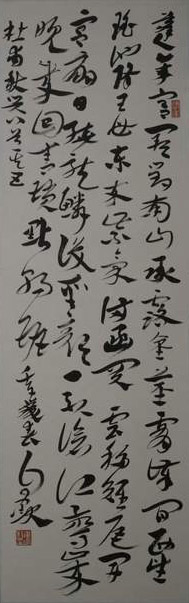 蓬萊宮闕對南山承露金莖霄漢間西望
瑤池降王母東來紫氣滿函關雲移雉尾開
宮扇日繞龍鱗識聖顏一臥滄江驚歲
晚幾回青瑣點朝班
杜甫秋興八首其五